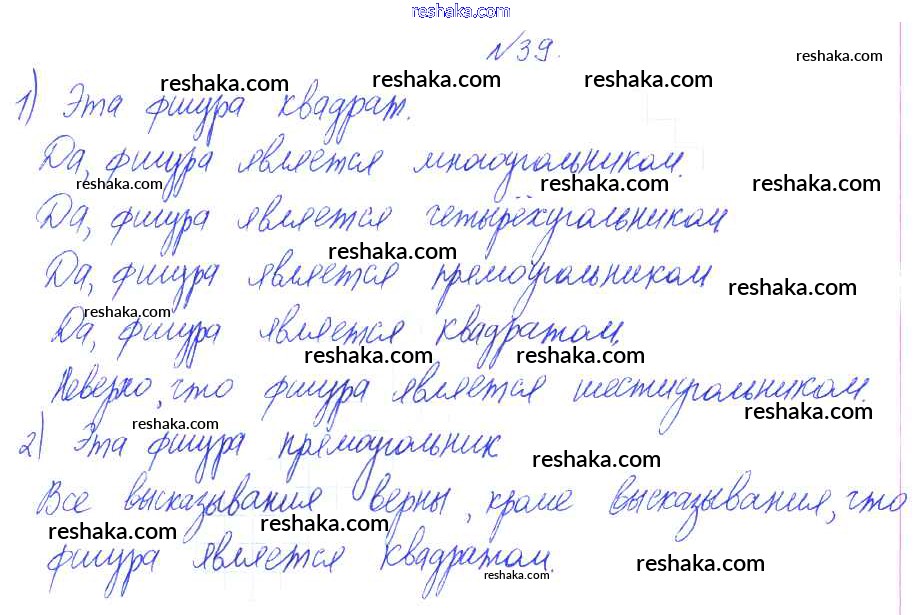 reshaka.com
№39.
reshaka.com
reshaka.com reshaka.com reshaka.com
1) Эта фигура квадрат.
Да, фигура является многоугольником.
reshaka.com reshaka.com reshaka.com
Да, фигура является четырёхугольником
reshaka.com
Да, фигура является прямоугольником
reshaka.com
reshaka.com
Да, фигура является квадратом.
reshaka.com reshaka.com
Неверно, что фигура является шестиугольником.
reshaka.com
reshaka.com
2) Эта фигура прямоугольник
reshaka.com
Все высказывания верны, кроме высказывания, что
reshaka.com reshaka.com
фигура является квадратом.
reshaka.com reshaka.com